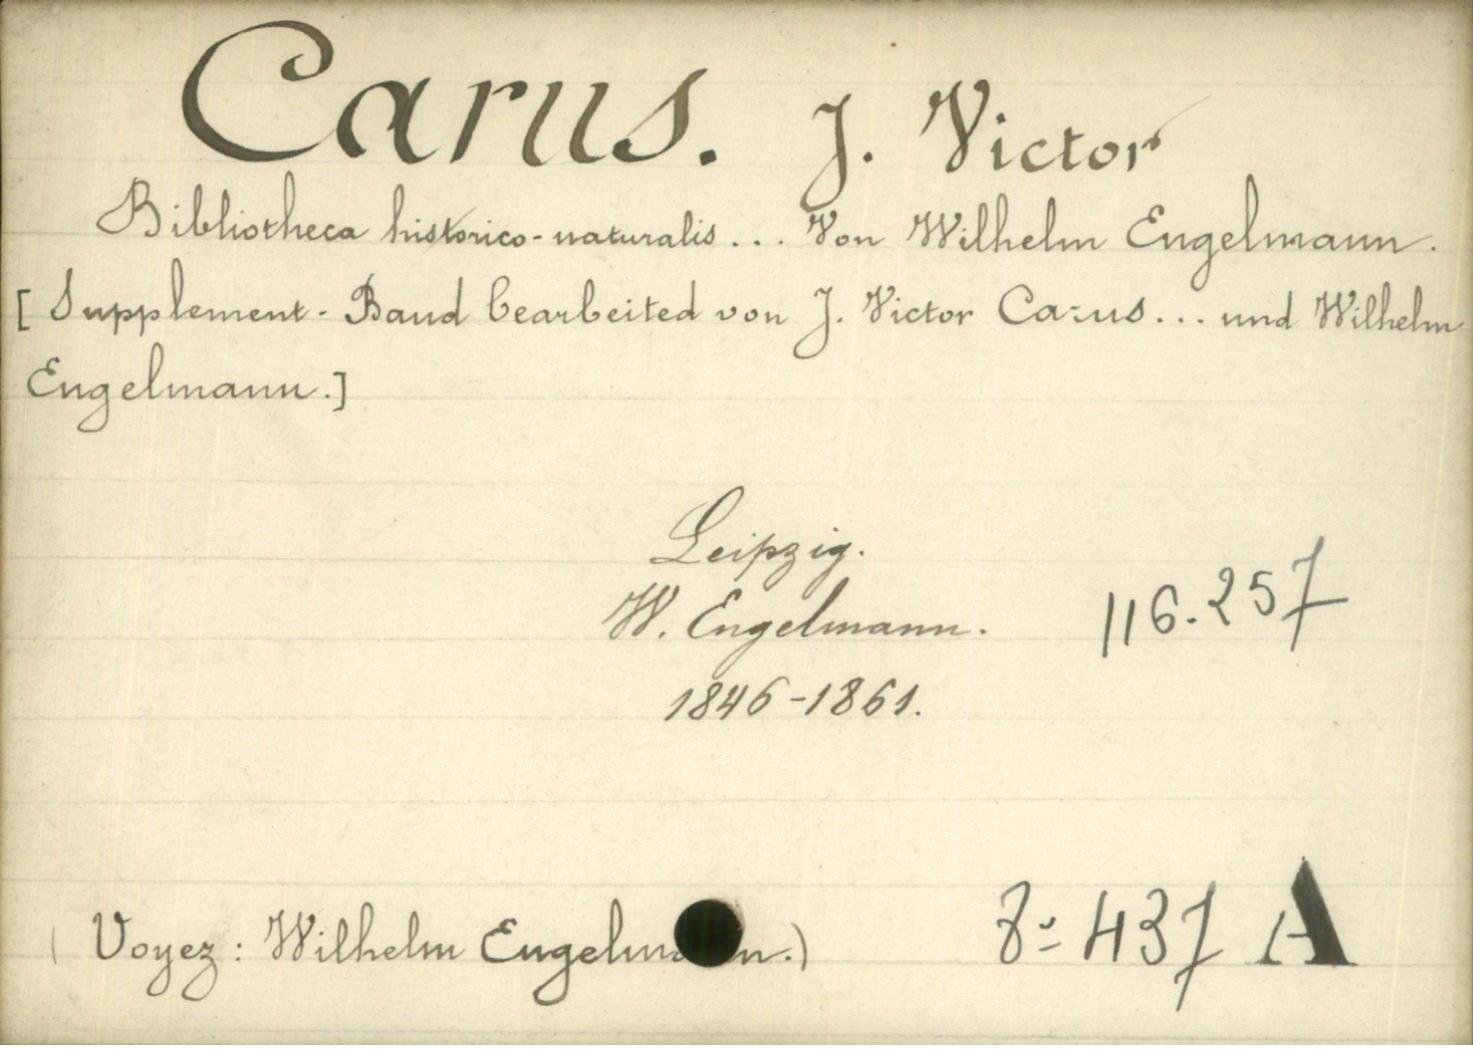 Carus. J. Victor
Bibliotheca historico-naturalis... Von Wilhelm Engelmann.
[Supplement-Band bearbeited von J. Victor Carus... und Wilhelm
Engelmann.]
Leipzig.
W. Engelmann.
116.257
1846-1861.
(Voyez: Wilhelm Engelmann.)
8º 437 A